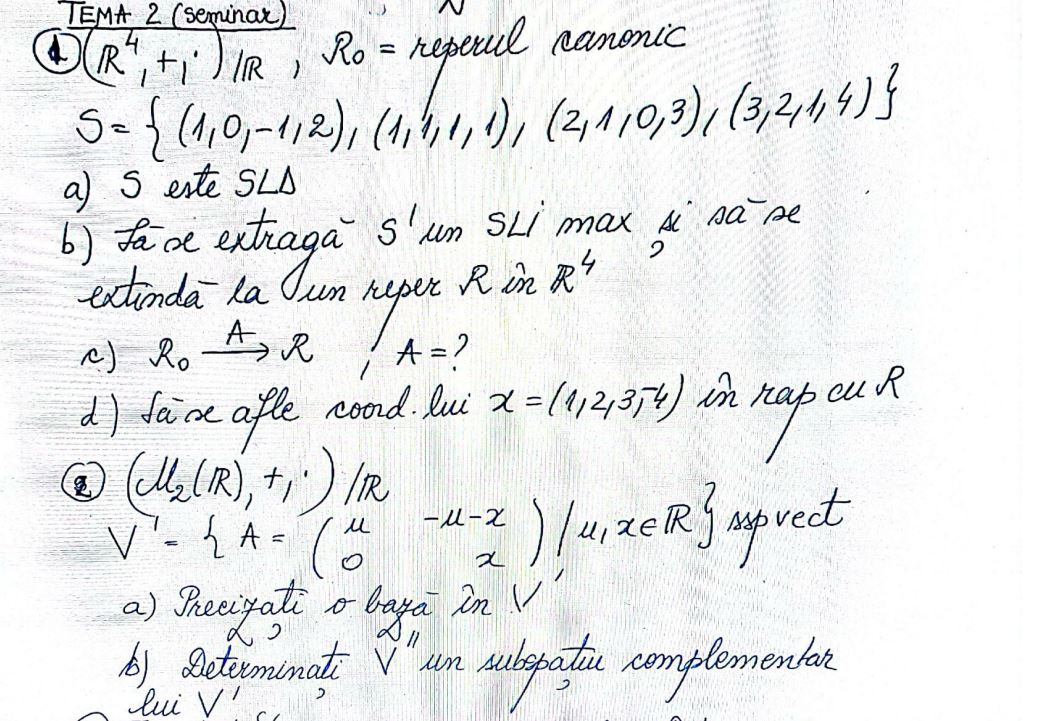 TEMA 2 (seminar)
① (ℝ⁴, +, ·)/ℝ , R₀ = reperul canonic
S = { (1,0,-1,2), (1,1,1,1), (2,1,0,3), (3,2,1,4) }
a) S este SLD
b) Să se extragă S' un SLI max și să se
extindă la un reper R în ℝ⁴
c) R₀ —A→ R , A = ?
d) Să se afle coord. lui x = (1,2,3,-4) în rap cu R
② (M₂(ℝ), +, ·)/ℝ
V' = { A = ( u -u-x ; 0 x ) , / u, x ∈ ℝ } ssp vect
a) Precizați o bază în V'
b) Determinați V'' un subspațiu complementar
lui V'